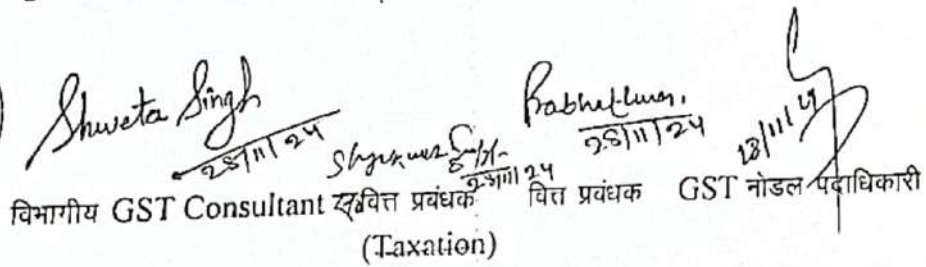 Shweta Singh
28/11/24
28/11/24
28/11/24
विभागीय GST Consultant वित्त प्रबंधक वित्त प्रबंधक GST नोडल पदाधिकारी
(Taxation)